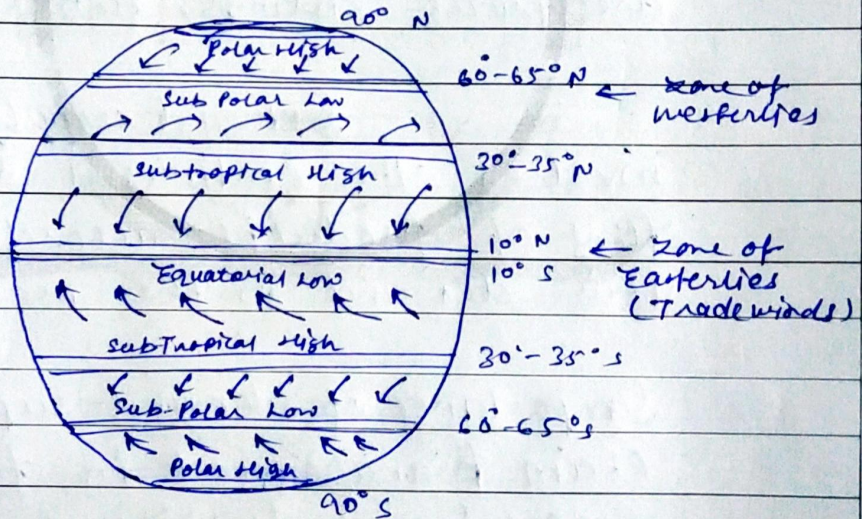 90° N
Polar High
60°-65° N
← zone of
westerlies
Sub Polar Low
Subtropical High
30°-35° N
10° N
← Zone of
10° S
Easterlies
(Tradewinds)
Equatorial Low
SubTropical High
30°-35° S
Sub-Polar Low
60°-65° S
Polar High
90° S